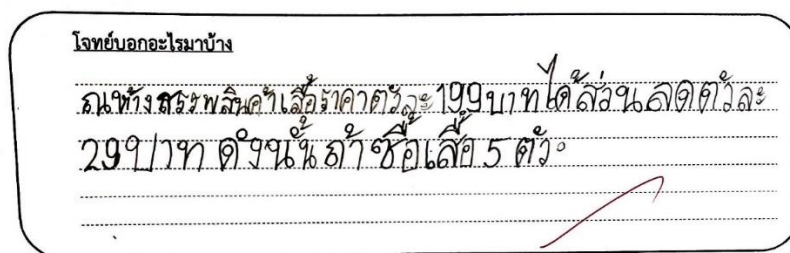 โจทย์บอกอะไรมาบ้าง
ณห้างสรรพสินค้าเสื้อราคาตัวละ 199 บาทได้ส่วนลดตัวละ
29 บาท ดังนั้นถ้าซื้อเสื้อ 5 ตัว